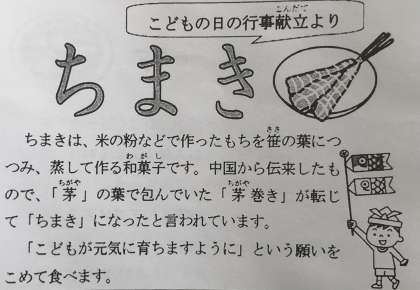 こどもの日の行事献立より
ちまき
ちまきは、米の粉などで作ったもちを笹の葉につ
つみ、蒸して作る和菓子です。中国から伝来したも
ので、「茅」の葉で包んでいた「茅巻き」が転じ
て「ちまき」になったと言われています。
「こどもが元気に育ちますように」という願いを
こめて食べます。